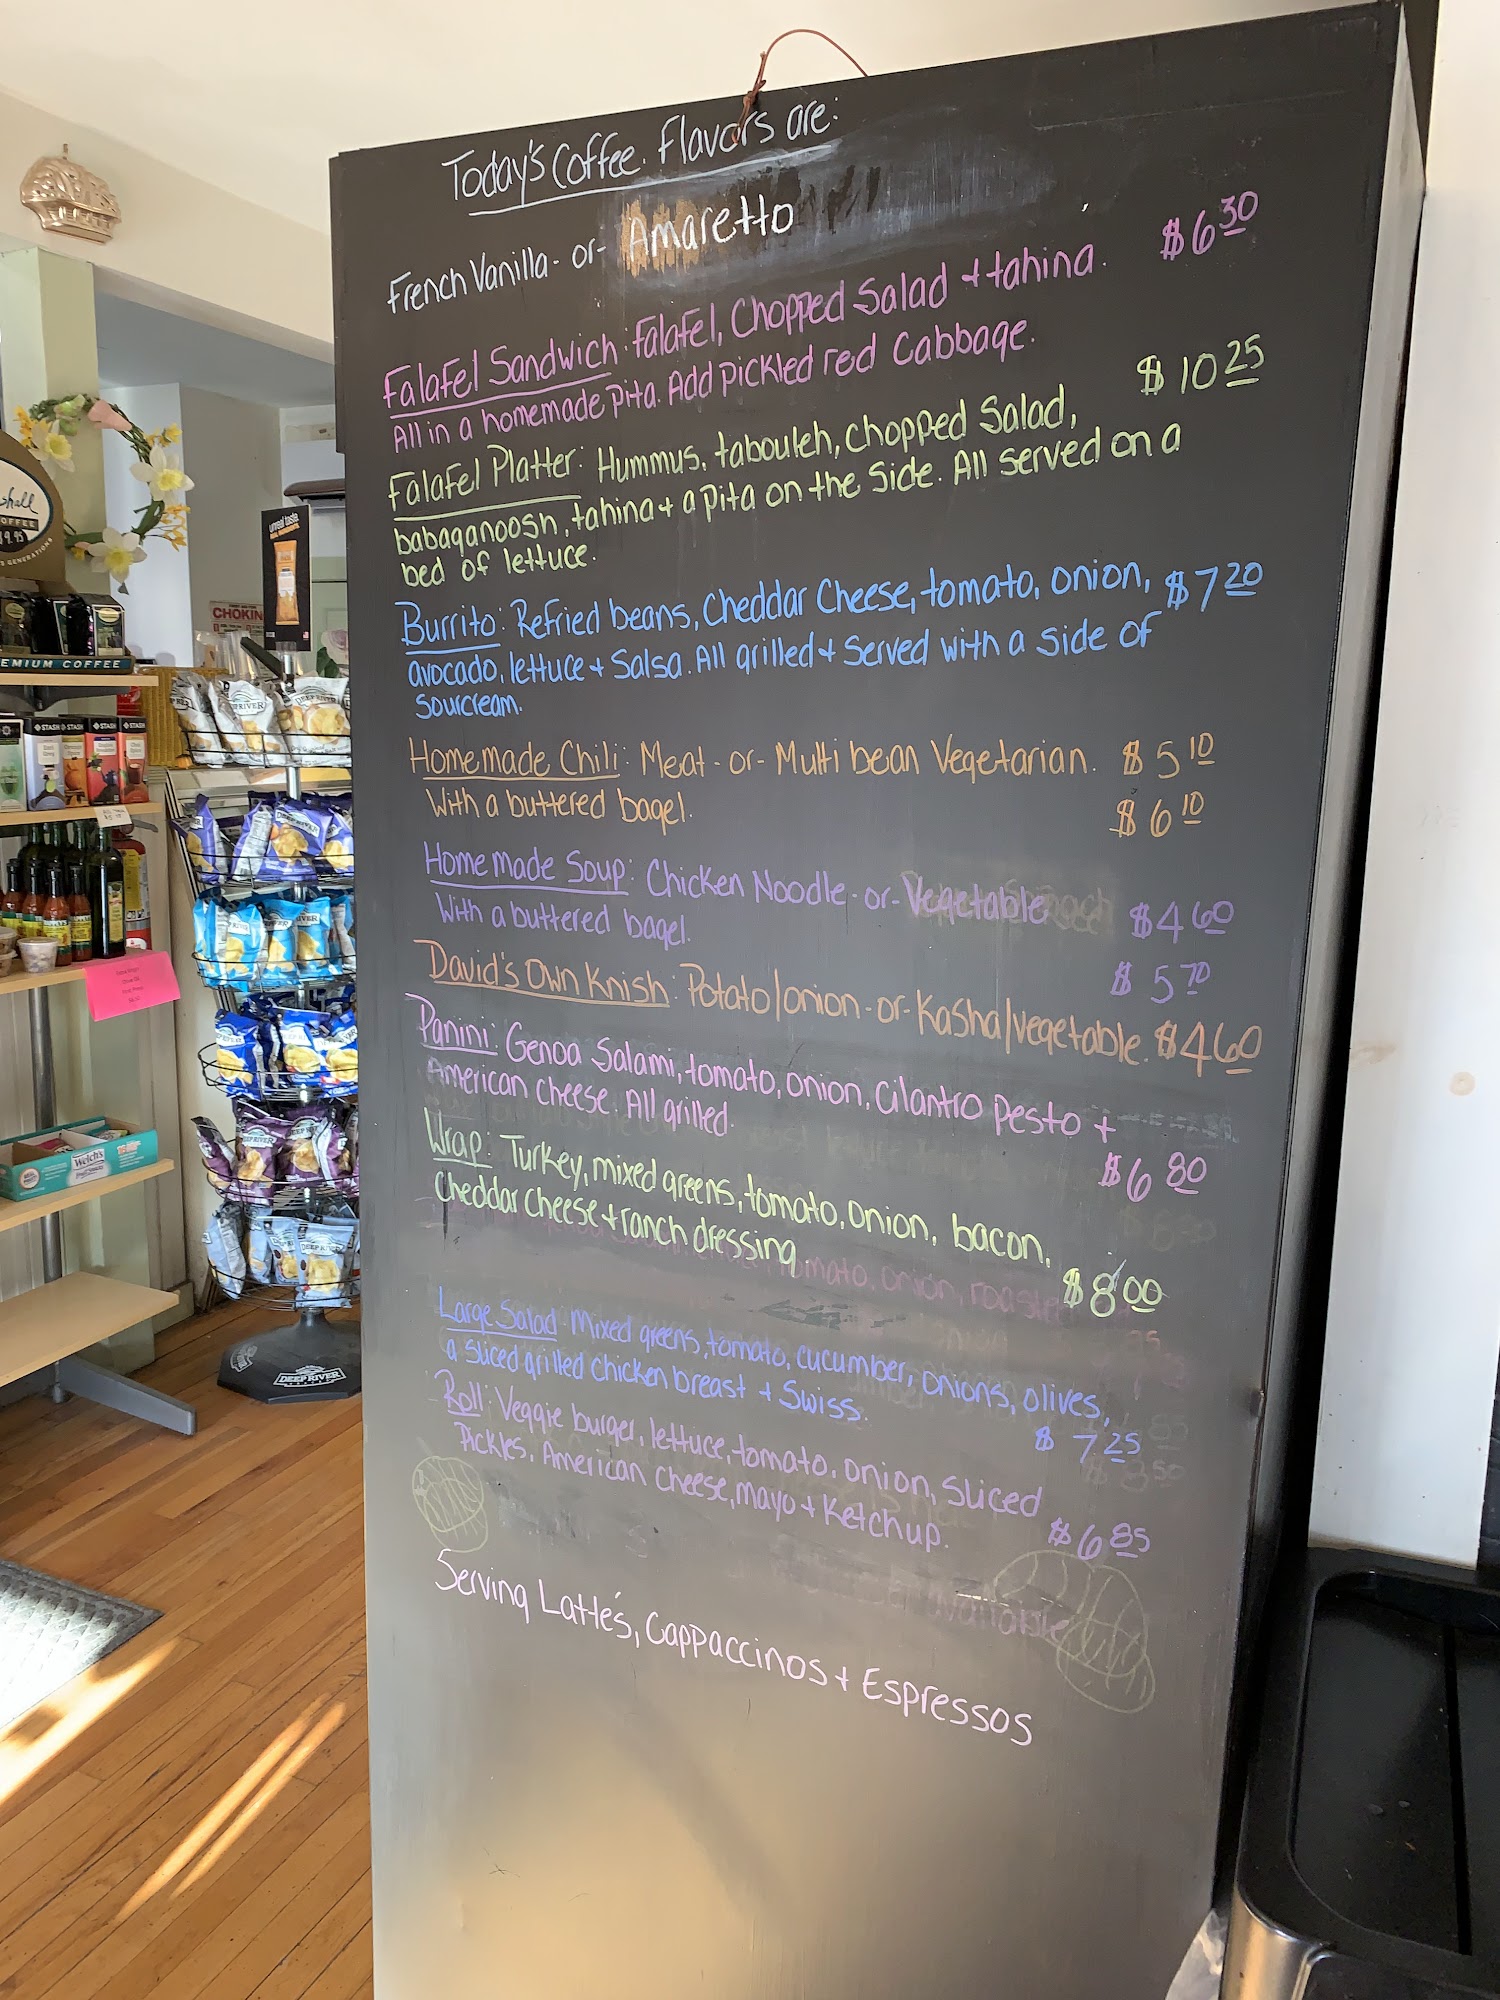 Today's Coffee Flavors are:
French Vanilla - or - Amaretto
Falafel Sandwich: Falafel, Chopped Salad + tahina. $6 30
All in a homemade pita. Add pickled red Cabbage.
Falafel Platter: Hummus, tabouleh, Chopped Salad, $10 25
babaganoosh, tahina + a pita on the side. All served on a
bed of lettuce.
Burrito: Refried beans, Cheddar Cheese, tomato, onion, $7 20
avocado, lettuce + Salsa. All grilled + Served with a side of
Sourcream.
Homemade Chili: Meat - or - Multi bean Vegetarian. $5 10
With a buttered bagel. $6 10
Homemade Soup: Chicken Noodle - or - Vegetable $4 60
With a buttered bagel. $5 70
David's Own Knish: Potato/onion - or - Kasha/vegetable. $4 60
Panini: Genoa Salami, tomato, onion, Cilantro Pesto +
American cheese. All grilled. $6 80
Wrap: Turkey, mixed greens, tomato, onion, bacon,
Cheddar cheese + ranch dressing. $8 00
Large Salad: Mixed greens, tomato, cucumber, onions, olives,
a sliced grilled chicken breast + Swiss. $7 25
Roll: Veggie burger, lettuce, tomato, onion, sliced
Pickles, American cheese, mayo + Ketchup. $6 85
Serving Latte's, Cappaccinos + Espressos
COFFEE
GENERATIONS
EMIUM COFFEE
CHOKIN
unreal taste
STASH STASH STASH
DEEP RIVER
DEEP RIVER
DEEP RIVER
Welch's
DEEP RIVER